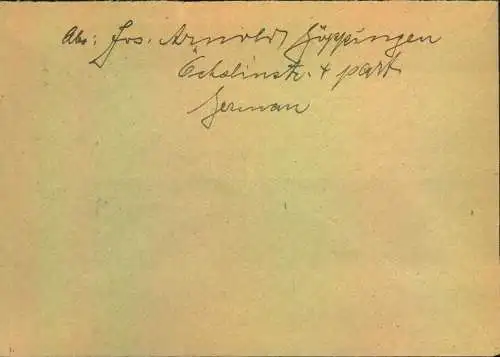 Abs: Jos. Arnold, Göppingen
Oetzlinstr. 4 part
German